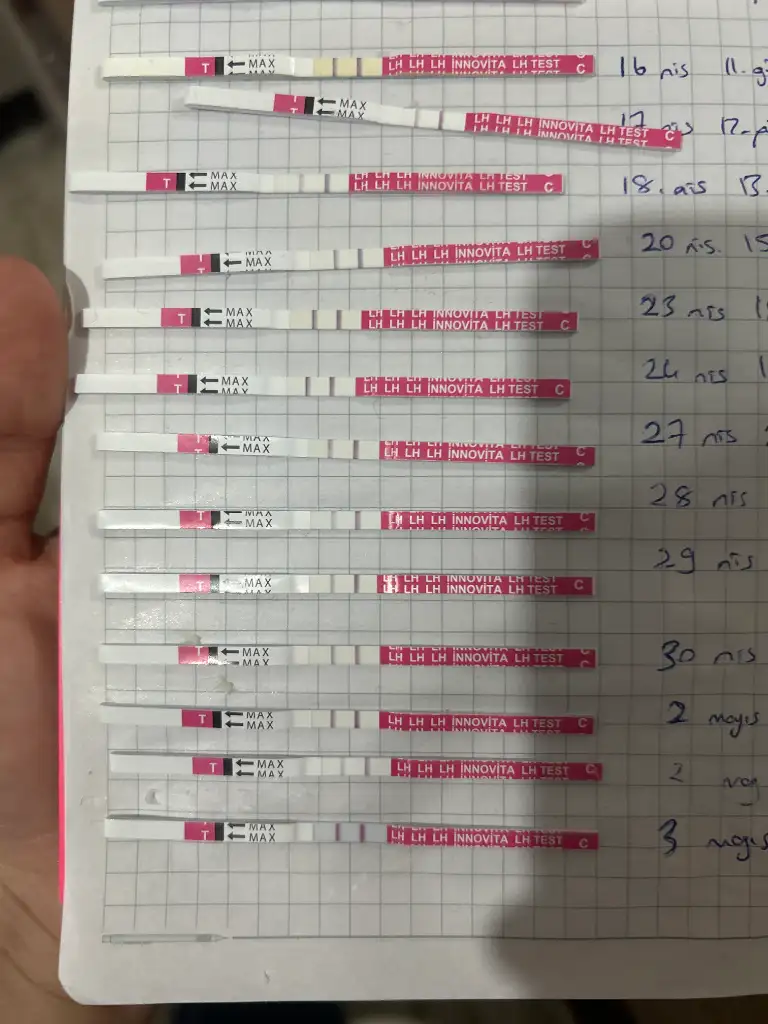 T MAX MAX LH LH LH İNNOVİTA LH TEST C 16 nis 11.
T MAX MAX LH LH LH İNNOVİTA LH TEST C 17 nis 12.
T MAX MAX LH LH LH İNNOVİTA LH TEST C 18. nis 13.
T MAX MAX LH LH LH İNNOVİTA LH TEST C 20 nis. 15
T MAX MAX LH LH LH İNNOVİTA LH TEST C 23 nis
T MAX MAX LH LH LH İNNOVİTA LH TEST C 24 nis
T MAX MAX LH LH LH İNNOVİTA LH TEST C 27 nis
T MAX MAX LH LH LH İNNOVİTA LH TEST C 28 nis
T MAX MAX LH LH LH İNNOVİTA LH TEST C 29 nis
T MAX MAX LH LH LH İNNOVİTA LH TEST C 30 nis
T MAX MAX LH LH LH İNNOVİTA LH TEST C 2 mayıs
T MAX MAX LH LH LH İNNOVİTA LH TEST C 2 may
T MAX MAX LH LH LH İNNOVİTA LH TEST C 3 mayıs